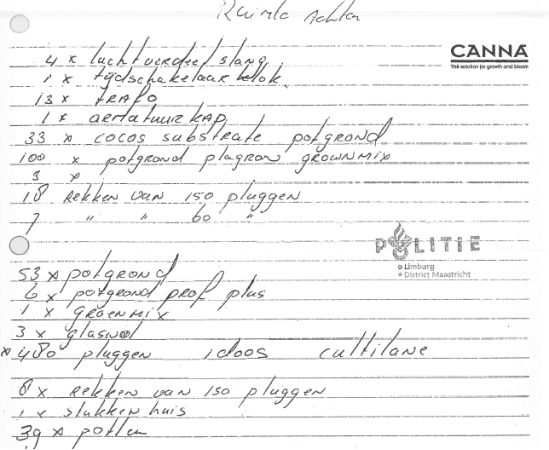 Ruimte Achter
4 x luchtverdeel slang
CANNA
The solution for growth and bloom
1 x tijdschakelaar klok
13 x TRAFO
1 x armatuurkap
33 x cocos substrate potgrond
100 x potgrond plagron grownmix
3 x
18 Rekken van 150 pluggen
7 " " 60 "
POLITIE
Limburg
District Maastricht
53 x potgrond
6 x potgrond prof plus
1 x groenmix
3 x glaswol
* 480 pluggen 1 doos cultilane
8 x Rekken van 150 pluggen
1 x slakkenhuis
39 x potten